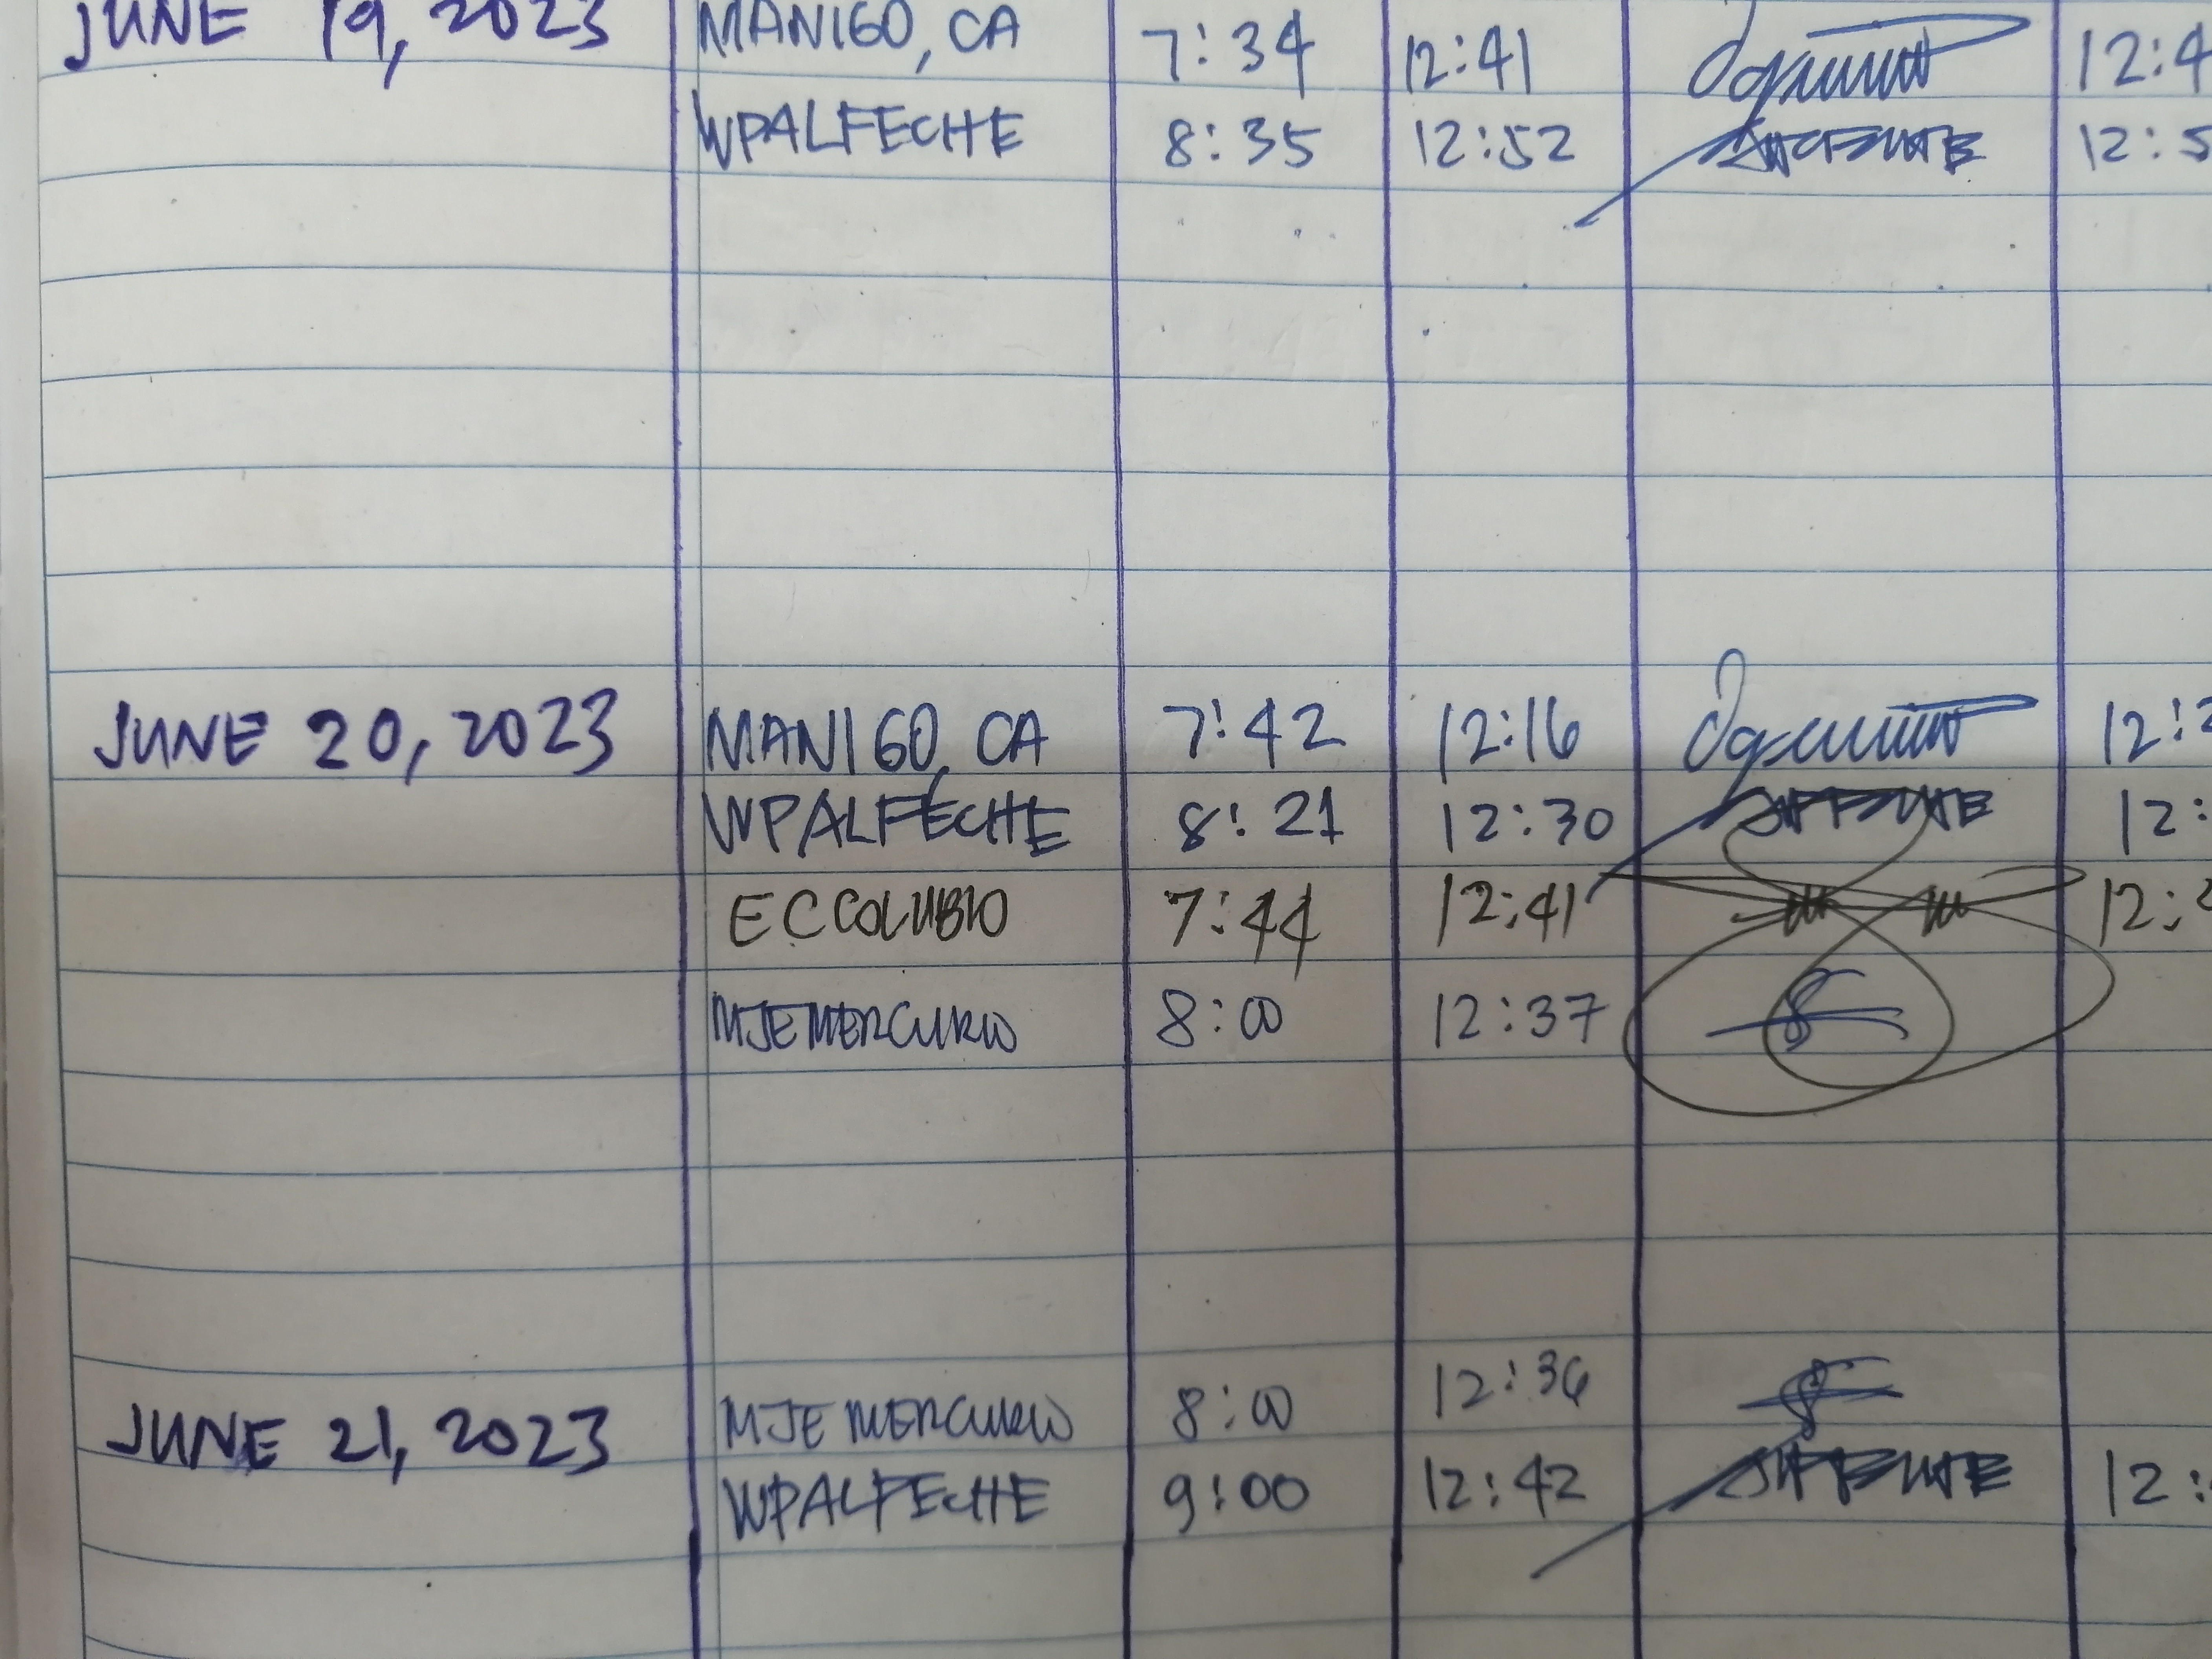 JUNE 19, 2023 MANIGO, CA 7:34 12:41 12:4
WPALFECHE 8:35 12:52 12:5
JUNE 20, 2023 MANIGO, CA 7:42 12:16 12:2
WPALFECHE 8:21 12:30 12:
ECCOLUBIO 7:44 12:41 12:
MJEMERCURIO 8:00 12:37
JUNE 21, 2023 MJEMERCURIO 8:00 12:36
WPALFECHE 9:00 12:42 12: